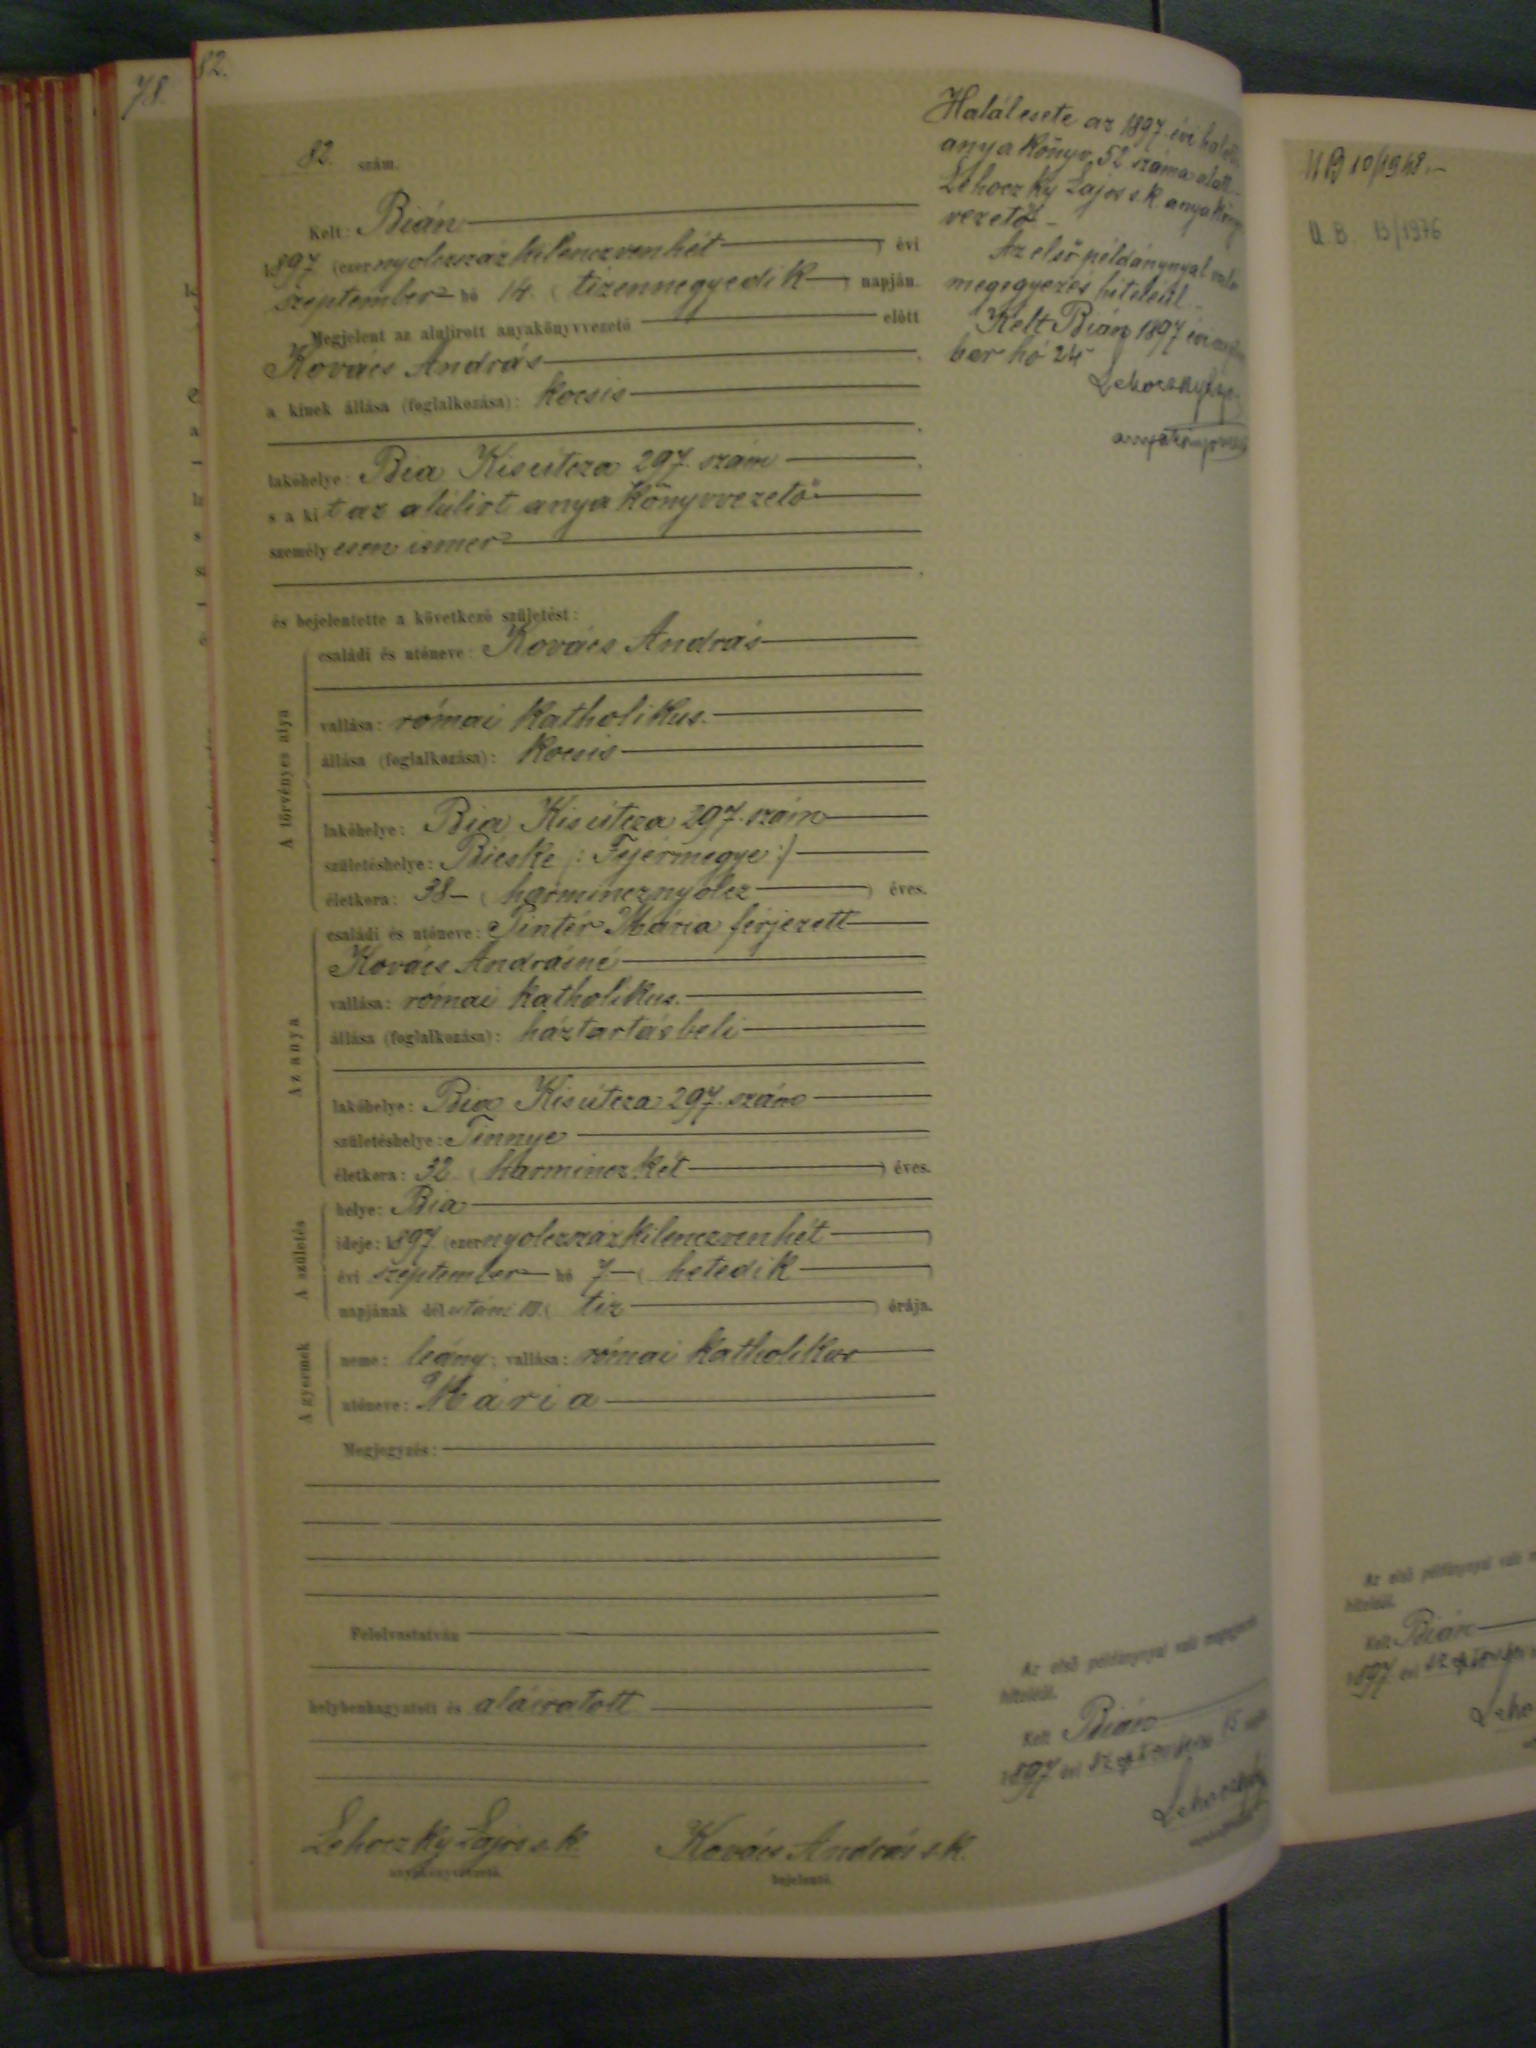 78.
82.
82. szám.
Kelt: Bián
1897 (ezernyolczszázkilenczvenhét) évi
szeptember hó 14. (tizennegyedik) napján.
Megjelent az alulirott anyakönyvvezető előtt
Kovács András
a kinek állása (foglalkozása): kocsis
lakóhelye: Bia Kisútcza 297. szám
s a kit az alúlirt anyakönyvvezető
személyesen ismer
és bejelentette a következő születést:
A törvényes atya
családi és utóneve: Kovács András
vallása: római katholikus.
állása (foglalkozása): kocsis
lakóhelye: Bia Kisútcza 297. szám
születéshelye: Bicske /: Fejérmegye :/
életkora: 38 – (harmincznyolcz) éves.
Az anya
családi és utóneve: Pintér Mária férjezett
Kovács Andrásné
vallása: római katholikus.
állása (foglalkozása): háztartásbeli
lakóhelye: Bia Kisútcza 297. szám
születéshelye: Tinnye
életkora: 32 (harminczkét) éves.
A születés
helye: Bia
ideje: 1897. (ezernyolczszázkilenczvenhét)
évi szeptember hó 7 – (hetedik)
napjának délutáni 10. (tiz) órája.
A gyermek
neme: leány; vallása: római katholikus
utóneve: Mária
Megjegyzés:
Felolvastatván
helybenhagyatott és aláiratott
Lehoczky Lajos s.k.
anyakönyvvezető.
Kovács András s.k.
bejelentő.
Halálesete az 1897. évi
anyakönyv, 52 száma alatt
Lehoczky Lajos s.k.
vezető –
Az első példánynyal való
megegyezés hiteléül.
Kelt Bián, 1897 évi
ber hó 24
Az első példánynyal való megegyezés
hiteléül.
Kelt Bián
1897 évi szeptember 15
Lehoczky
10/1948.–
U. B. 13/1976
Az első példánynyal való
hiteléül.
Kelt Bián
1897 évi szeptember